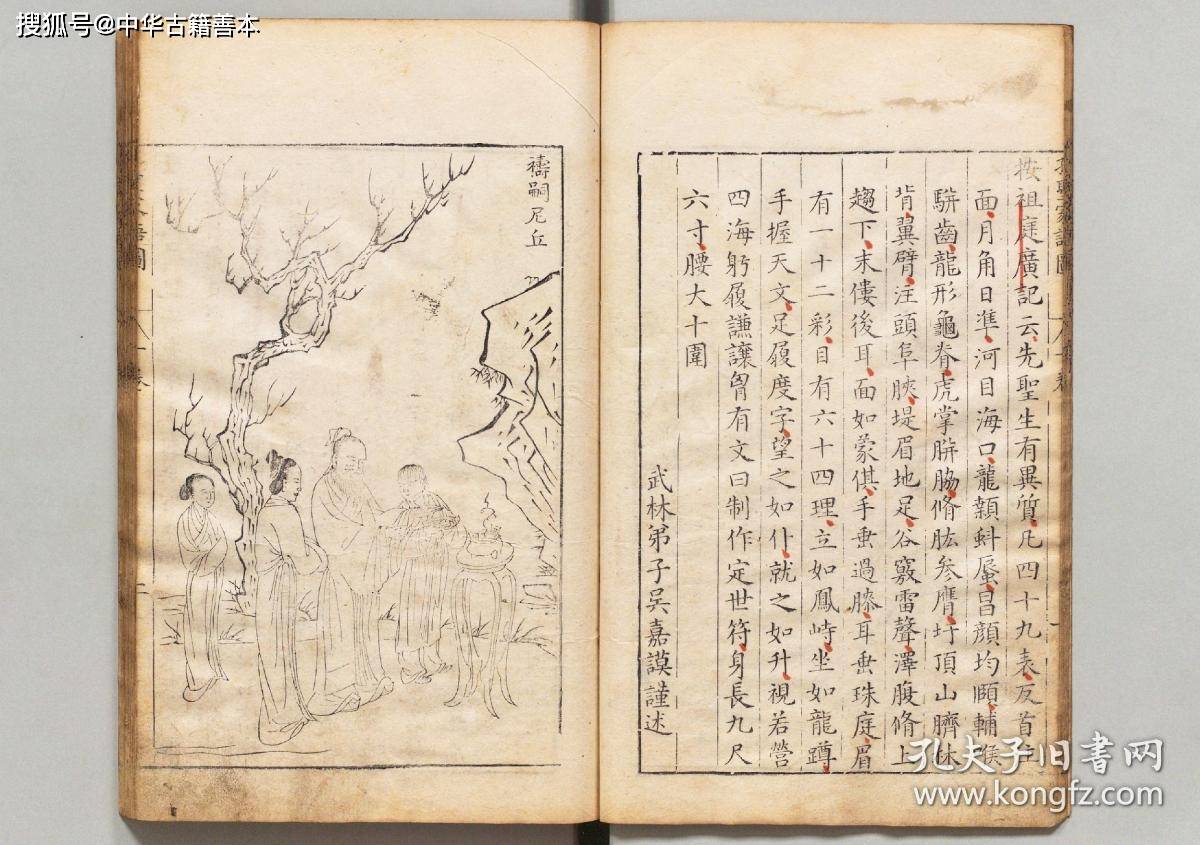 搜狐号@中华古籍善本
按祖庭廣記云先聖生有異質凡四十九表反首洼
面月角日準河目海口龍顙斟脣昌顏均頤輔喉
駢齒龍形龜脊虎掌騈脇脩肱參膺圩頂山臍林
背翼臂注頭阜脥堤眉地足谷竅雷聲澤腹脩上
趨下末僂後耳面如蒙倛手垂過膝耳垂珠庭眉
有一十二彩目有六十四理立如鳳峙坐如龍蹲
手握天文足履度字望之如仆就之如升視若營
四海躬履謙讓胷有文曰制作定世符身長九尺
六寸腰大十圍
武林弟子吳嘉謨謹述
禱嗣尼丘
孔夫子旧书网
www.kongfz.com